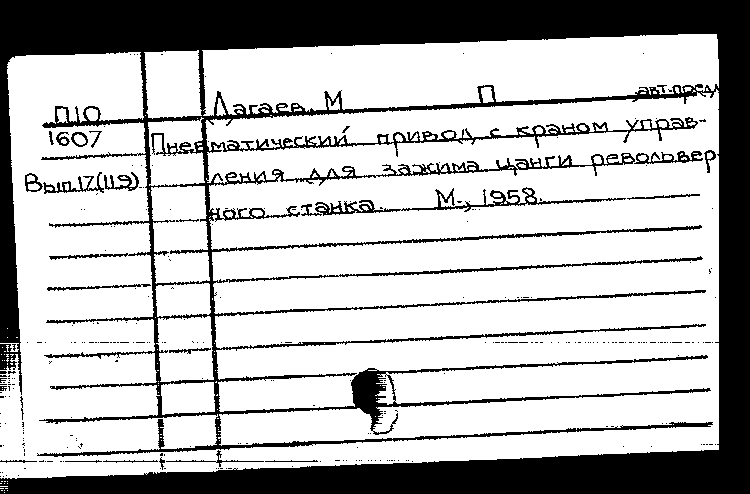 П10 Дагаев, М П авт.предл
1607 Пневматический привод с краном управ-
Вып.17(119) ления для зажима цанги револьвер
ного станка. М., 1958.